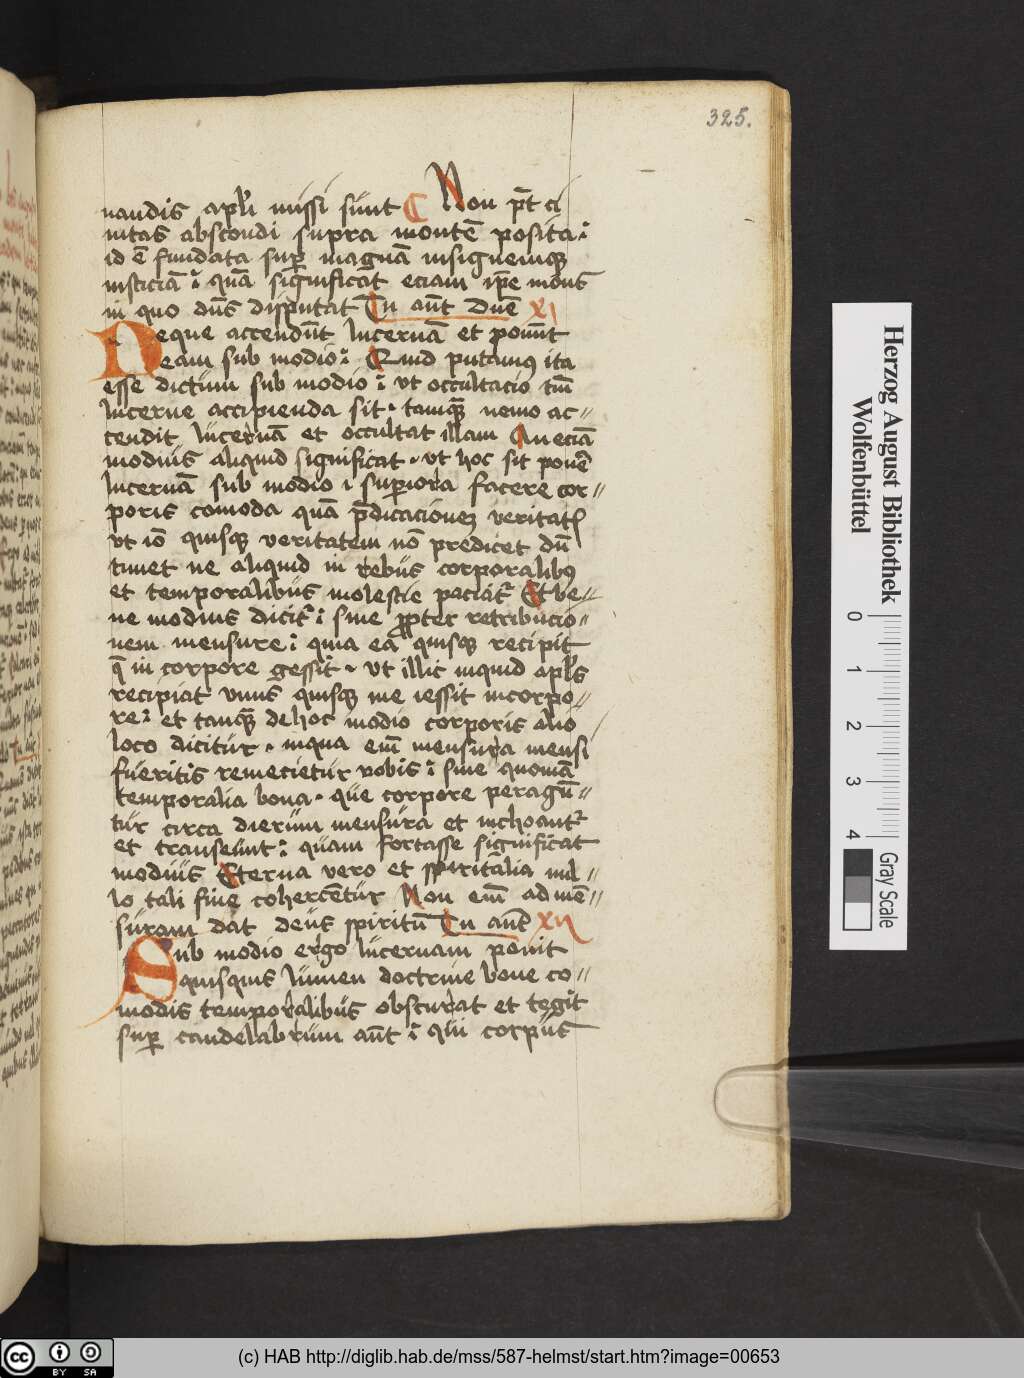 325.
nandis apl'i missi sunt Non pt̄ ci
uitas abscondi supra montē posita :
id ē fundata sup̱ magnā insignemqꝫ
iusticiā : quā significāt eciam ip̄e mons
in quo dn̄s disputat In aūt Duē XI
Neque accendūt lucernā et ponūt
eam sub modio : Quid putamꝰ ita
esse dictum sub modio : vt occultacio tm̄
lucerne accipienda sit · tamqꝫ nemo ac//
cendit lucernā et occultat illam An eciā
modius aliquid significat · vt hoc sit ponē
lucernā sub modio i sup̱iora facere cor//
poris comoda quā p̄dicacionem veritatꝭ
vt iō quisqꝫ veritatem nō predicet dū
timet ne aliquid in rebus corporalibꝰ
et temporalibus molestie paciat᷑ Et be//
ne modius dicit᷑ : siue ꝓpter retribucio//
nem mensure : quia eā quisqꝫ recipit
q̄ in corpore gessit · vt illic inquid apl's
recipiat vnus quisqꝫ
re : et tanqꝫ de hoc modio corporis alio
loco dicitur · in qua em̄ mensura mensi
fueritis remecietur vobis : siue quoniā
temporalia bona · que corpore peragū//
tur circa dierum mensura et inchoant᷑
et transeunt : quam fortasse significat
modius Eterna vero et spiritalia nul//
lo tali fine cohercētur Non em̄ ad mē//
suram dat deus spiritū In aūt XII
Sub modio ergo lucernam ponit
quisquis lumen doctrine bone co//
modis temporalibus obscurat et tegit
sup̱ candelabrum aūt : qui corpus
Herzog August Bibliothek
Wolfenbüttel
0 1 2 3 4
Gray Scale
cc BY SA
(c) HAB http://diglib.hab.de/mss/587-helmst/start.htm?image=00653